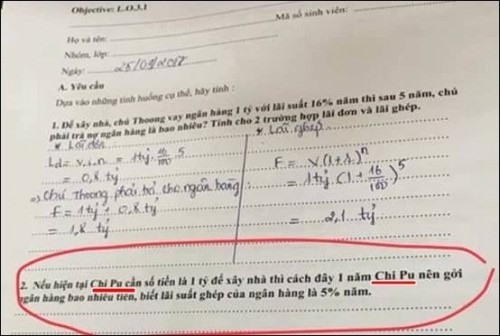 Objective: L.O.3.1
Mã số sinh viên:
Họ và tên:
Nhóm, lớp:
Ngày: 28/09/2017
A. Yêu cầu
Dựa vào những tình huống cụ thể, hãy tính :
1. Để xây nhà, chú Thoong vay ngân hàng 1 tỷ với lãi suất 16% năm thì sau 5 năm, chú
phải trả nợ ngân hàng là bao nhiêu? Tính cho 2 trường hợp lãi đơn và lãi ghép.
* Lãi đơn
Lđ = v.i.n = 1 tỷ . 16/100 . 5
= 0,8 tỷ
=> Chú Thoong phải trả cho ngân hàng :
F = 1 tỷ + 0,8 tỷ
= 1,8 tỷ
* Lãi ghép
F = v(1+i)^n
= 1 tỷ (1 + 16/100)^5
= 2,1 tỷ
2. Nếu hiện tại Chi Pu cần số tiền là 1 tỷ để xây nhà thì cách đây 1 năm Chi Pu nên gởi
ngân hàng bao nhiêu tiền, biết lãi suất ghép của ngân hàng là 5% năm.